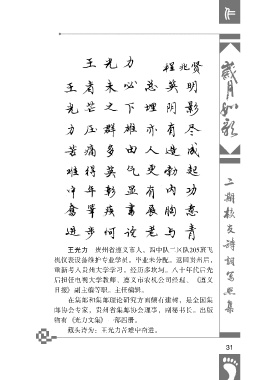 王光力
程兆贤
王者未必总英明
光芒之下埋阴影
力压群雄亦有尽
苦痛多由人造成
难得英气更勃起
中年彰显有内功
奮筆疾書展胸意
进步何论老与青
王光力 贵州省遵义市人，四中队二区队205班飞
机仪表设备维护专业学员。毕业未分配。返回贵州后，
重新考入贵州大学学习。经历多坎坷。八十年代后先
后担任电视大学教师、遵义市农机公司经理、《遵义
日报》副主编等职。主任编辑。
在集邮和集邮理论研究方面颇有建树，是全国集
邮协会专家、贵州省集邮协会理事、副秘书长。出版
物有《光力文集》一部四册。
藏头诗为：王光力苦难中奋进。
岁月如歌
二期校友诗词写照集
31